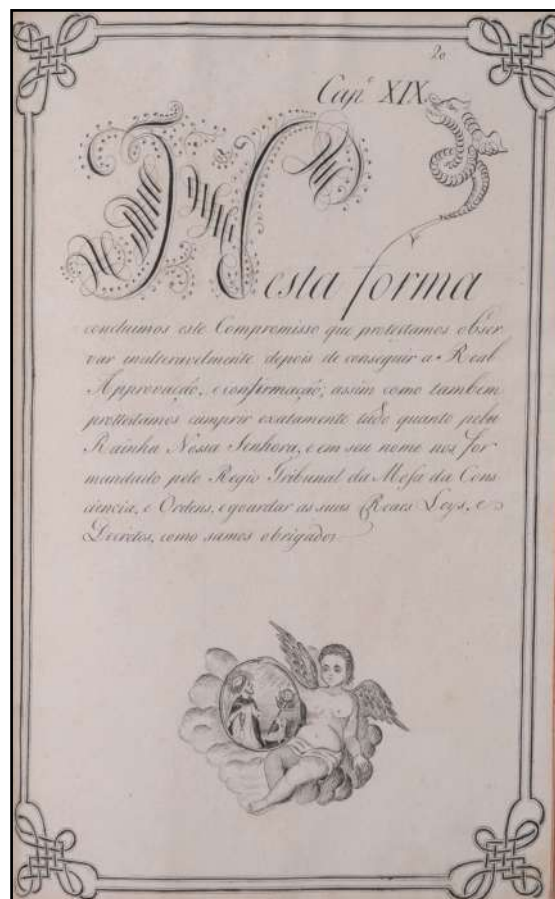 20
Cap.º XIX
Nesta forma
concluimos este Compromisso que protestamos obser
var inalteravelmente depois de conseguir a Real
Approvação, e confirmação, assim como tambem
prottestamos cumprir exatamente tudo quanto pela
Rainha Nossa Senhora, e em seu nome nos for
mandado pelo Regio Tribunal da Mesa da Cons
ciencia, e Ordens, e guardar as suas Reaes Leys, e
Decretos, como samos obrigados